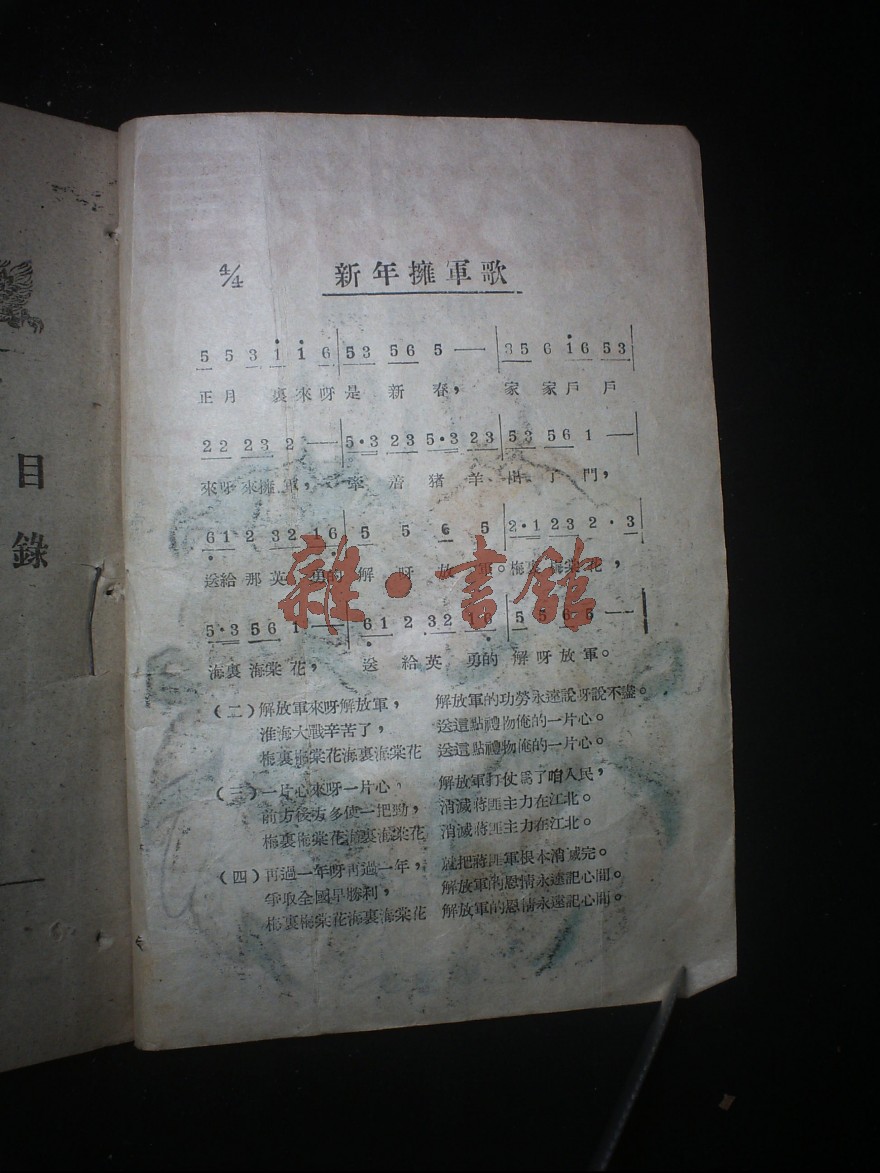 目
錄
4/4 新年擁軍歌
5 5 3 i i 6 | 5 3 5 6 5 — | 3 5 6 i 6 5 3 |
正月 裏來呀是 新 春， 家 家戶 戶
2 2 2 3 2 — | 5·3 2 3 5·3 2 3 | 5 3 5 6 1 — |
來呀來擁軍， 牽 着 猪 羊 出 了 門，
6 1 2 3 2 1 6 | 5 5 6 5 | 2·1 2 3 2·3 |
送給 那 英 勇的 解 呀 放 軍。梅裏 梅棠花，
5·3 5 6 1 — | 6 1 2 ·3 2 1 6 | 5 5 6·5 — |
海裏 海棠 花， 送 給英 勇的 解呀放軍。
雜·書館
（二）解放軍來呀解放軍， 解放軍的功勞永遠說呀說不盡。
淮海大戰辛苦了， 送這點禮物俺的一片心。
梅裏梅棠花海裏海棠花 送這點禮物俺的一片心。
（三）一片心來呀一片心， 解放軍打仗爲了咱人民，
前方後方多使一把勁， 消滅蔣匪主力在江北。
梅裏梅棠花海裏海棠花 消滅蔣匪主力在江北。
（四）再過一年呀再過一年， 就把蔣匪軍根本消滅完。
爭取全國早勝利， 解放軍的恩情永遠記心間。
梅裏梅棠花海裏海棠花 解放軍的恩情永遠記心間。